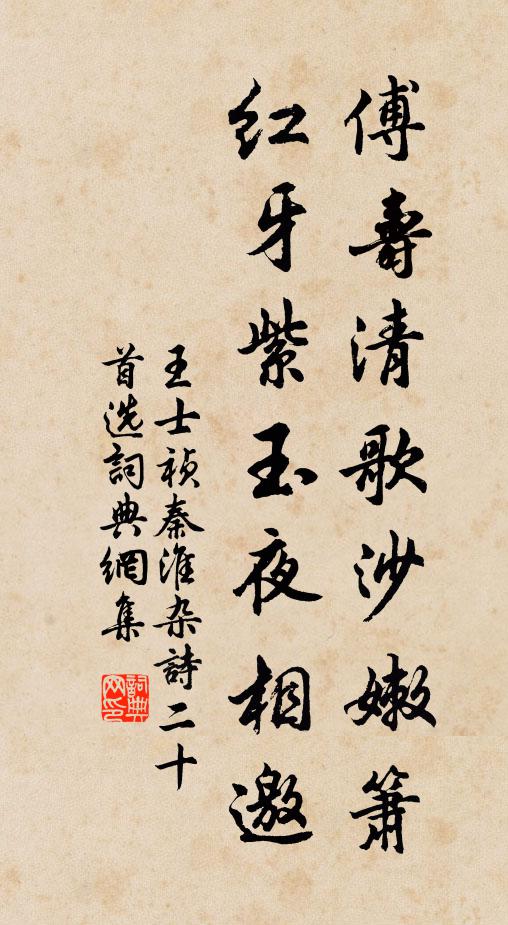 傅壽清歌沙嫩簫
红牙紫玉夜相邀
王士祯秦淮杂詩二十
首选詞典網集
詞典
网印